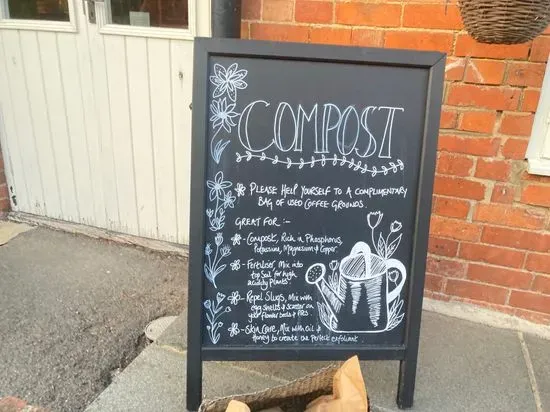 COMPOST
PLEASE HELP YOURSELF TO A COMPLIMENTARY
BAG OF USED COFFEE GROUNDS.
GREAT FOR :-
- Compost, Rich in Phosphorus,
Potassium, Magnesium & Copper.
- Fertiliser, Mix into
top Soil for high
acidity plants.
- Repel Slugs, Mix with
egg shells & scatter on
your flower beds & pots.
- Skin Care, Mix with oil &
honey to create the Perfect exfoliant